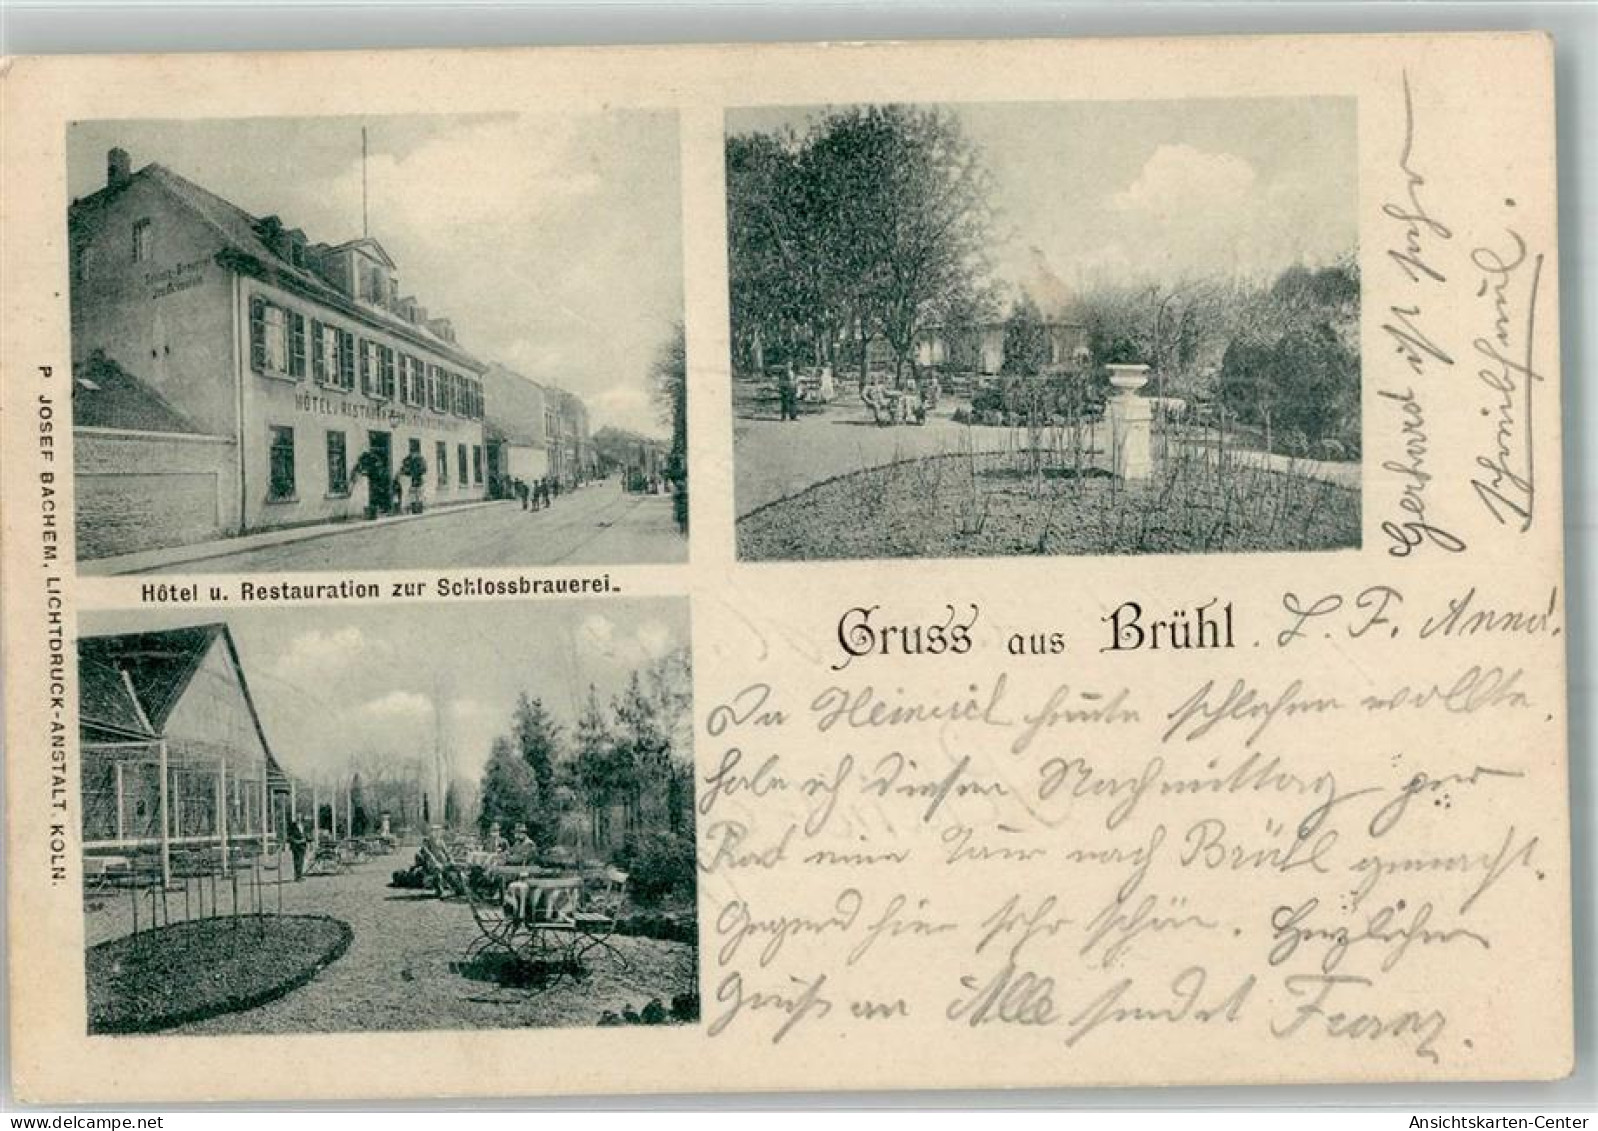 HÔTEL u. RESTAURATION
Hôtel u. Restauration zur Schlossbrauerei.
P JOSEF BACHEM, LICHTDRUCK-ANSTALT. KÖLN.
Gruss aus Brühl. L. F. Anna!
Da Heinrich heute schlafen wollte,
habe ich diesen Nachmittag per
Rad eine Tour nach Brühl gemacht.
Gegend hier sehr schön. Herzlichen
Gruß an Alle sendet Franz.
Gebraut ist sehr
Ansichtskarten-Center